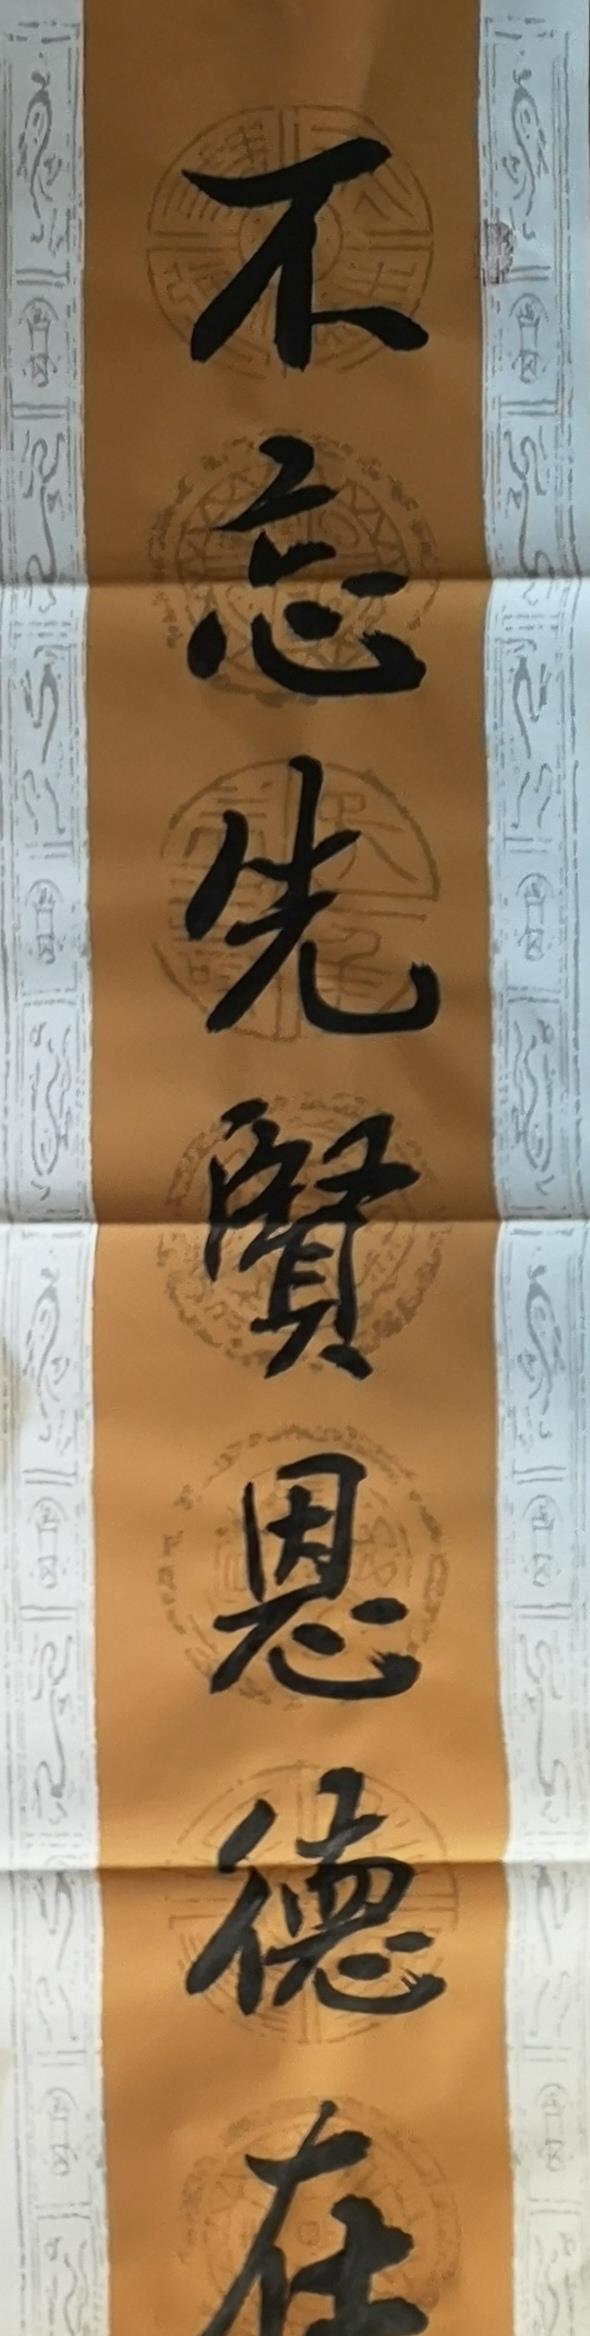 不忘先賢恩德在